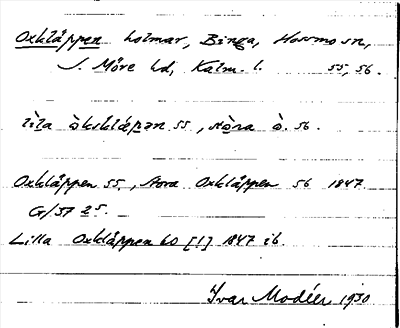 Oxkläppen holmar, Binga, Hossmo sn,
S. Möre hd, Kalm. l. 55, 56.
lìla òkskläpən 55, stòra ò. 56.
Oxkläppen 55, Stora Oxkläppen 56 1847
G/37 25.
Lilla Oxkläppen 60 [!] 1847 ib.
Ivar Modéer 1930